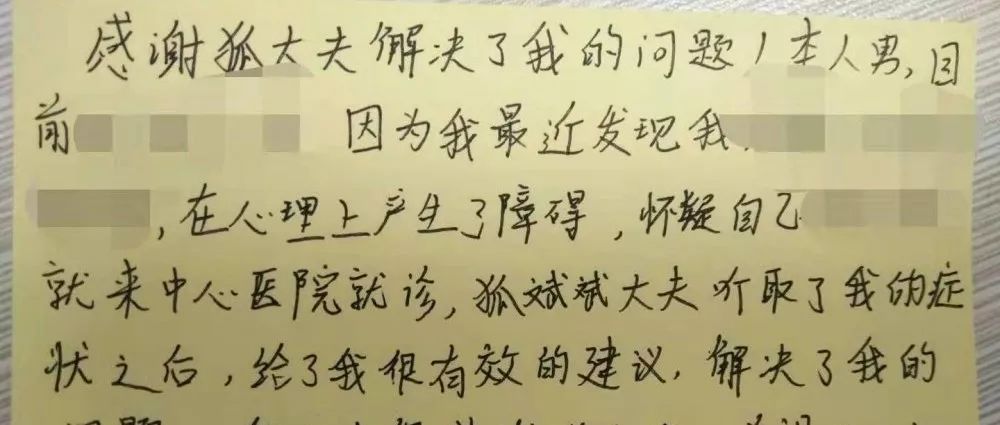 感谢狐大夫解决了我的问题！本人男，目
前 因为我最近发现我
，在心理上产生了障碍，怀疑自己
就来中心医院就诊，狐斌斌大夫听取了我的症
状之后，给了我很有效的建议，解决了我的